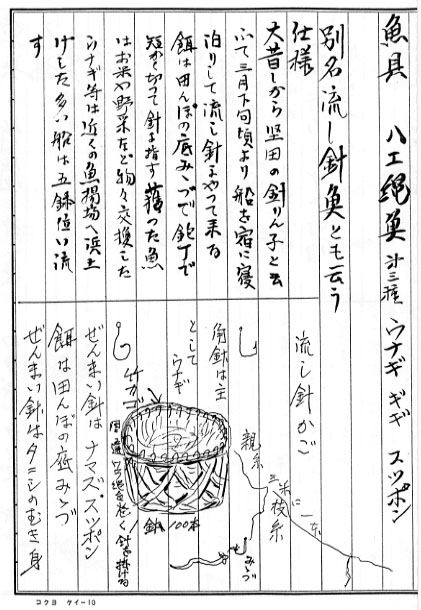 魚具 ハエ縄奠 計三種 ウナギ ギギ スッポン
別名流し針奠とも云う
仕様
大昔しから堅田の針りん子と云
ふて三月下旬頃より船を宿に寝
泊りして流し針をやって来る
餌は田んぼの底みゝづで鉋丁で
短かく切って針を指す 獲った魚
はお米や野菜など物々交換した
ウナギ等は近くの魚揚場へ浜上
げした多い船は五鉢位い流
す
流し針かご
角針は主
として
ウナギ
竹カゴ
針 100本
親糸
三米に一本
枝糸
みゝづ
ぜんまい針はナマズ、スッポン
餌は田んぼの底みゝづ
ぜんまい針はタニシのむき身
コクヨ ケイ-10